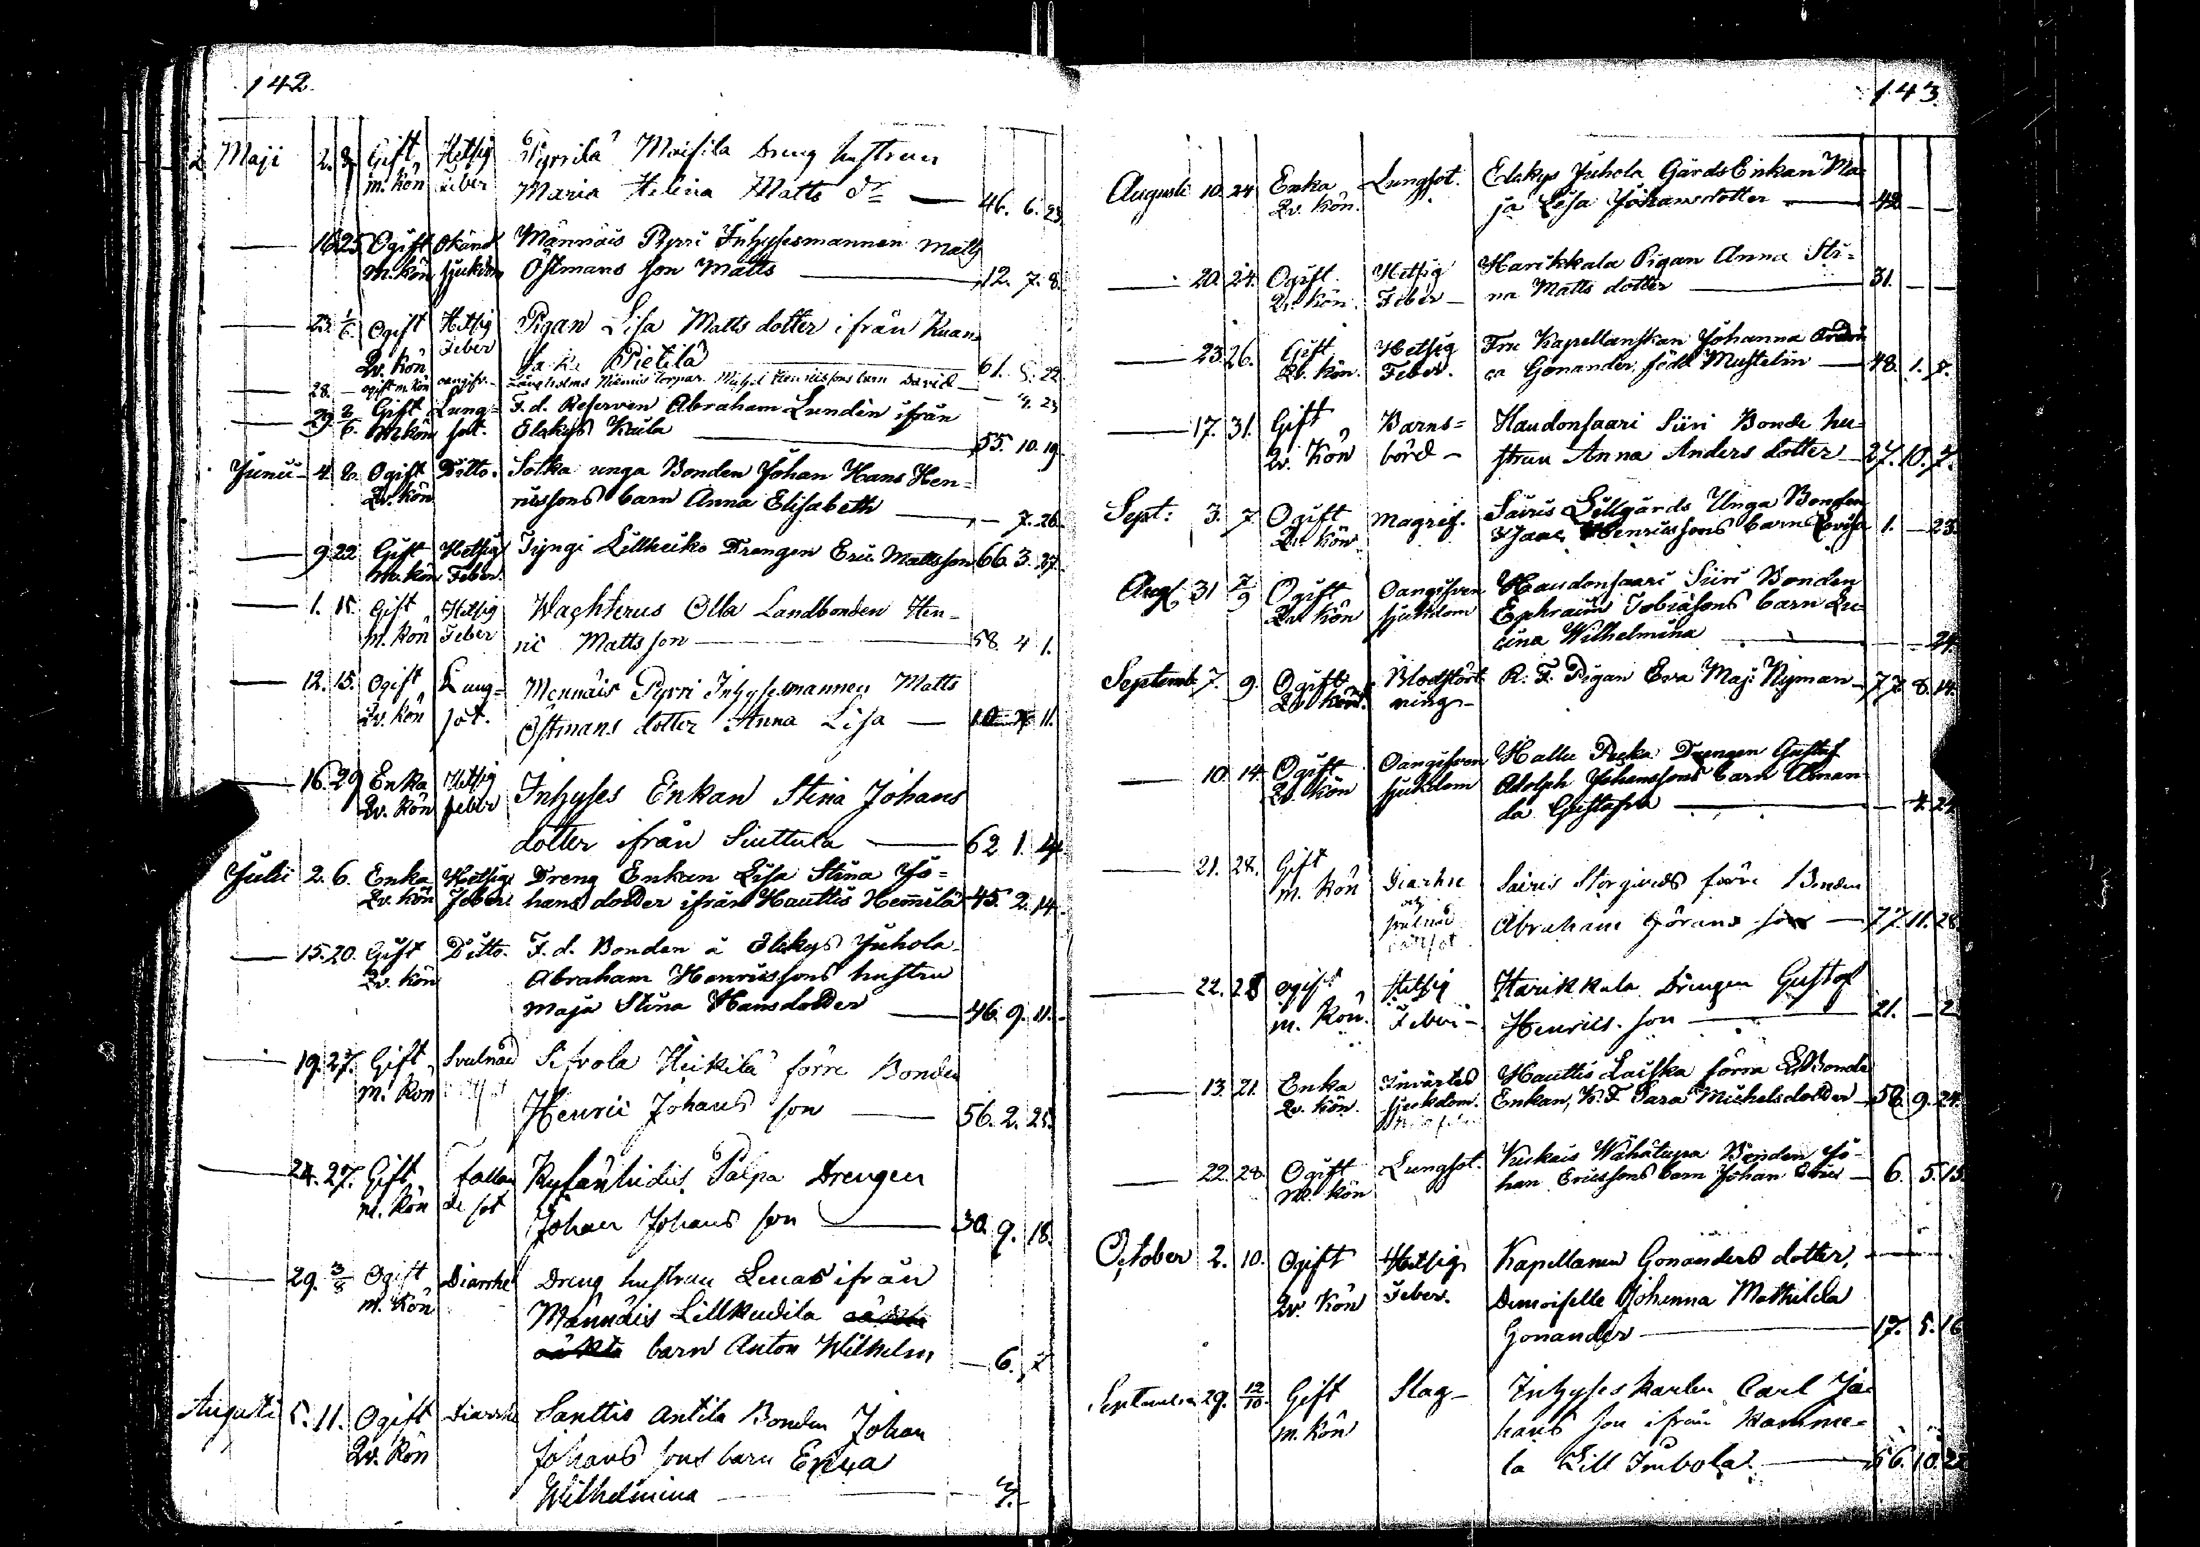 142.
Maji 2. 8. Gift Hetsig Pyrrilä Maisila Dreng hustrun
m. Kön feber Maria Helena Matts dr — 46. 6. 23
— 16 25 Ogift Okänd Männäis Pyrri Inhysesmannen Matts
m. Kön sjukdom Östmans son Matts — 12. 7. 8.
— 23. 1/6. Ogift Hetsig Pigan Lisa Matts dotter ifrån Kuan-
Qv. Kön Feber Pietilä — 61. 5. 22
28. — ogift m. Kön oangifv. Torpar. Michel Henricssons barn David — 4. 23
— 29. 2/6. Gift Lung= F. d. Reserven Abraham Lundén ifrån
M. Kön sot. Elskys Kaila — 55. 10. 19.
Junii 4. 6. Ogift Ditto. Sotka unga Bonden Johan Hans Hen-
Qv. Kön ricssons barn Anna Elisabeth — 7. 26.
— 9. 22 Gift Hetsig Tyngi Lillheiko Drengen Eric Mattsson 66. 3. 27.
m. Kön Feber.
— 1. 15. Gift Hetsig Wachterus Olla Landbonden Hen-
m. Kön Feber ric Matts son — 58. 4 1.
— 12. 15. Ogift Lung= Mennäis Pyrri Inhysesmannen Matts
Qv. Kön sot. Östmans dotter Anna Lisa — 10 11.
— 16. 29 Enka Hetsig Inhyses Enkan Stina Johans
Qv. Kön feber dotter ifrån Siuttula — 62 1. 4.
Julii 2. 6. Enka Hetsig Dreng Enkan Lisa Stina Jo=
Qv. Kön Feber. hans dotter ifrån Hauttis Hemmilä 45. 2. 14.
— 15. 20. Gift Ditto. F. d. Bonden å Elskys Juhola
Qv. Kön Abraham Henricssons hustru
Maja Stina Hansdotter — 46. 9. 11.
— 19. 27. Gift Svulnad Heikilä förre Bonden
m. Kön Henric Johans son — 56. 2. 25.
— 24. 27. Gift fallan Palpa Drengen
m. Kön de sot Johan Johans son — 30. 9. 18.
— 29. 3/8 Ogift Diarrhé Dreng hustrun Lenas ifrån
m. Kön Männäis Lillkudila
barn Anton Wilhelm — 6. 7
Augusti 5. 11. Ogift Diarrhé Santtis Antila Bonden Johan
Qv. Kön Johans sons barn Erica
Wilhelmina — 7.
143
Augusti 10. 24 Enka Lungsot. Elskys Juhola Gårds Enkan Ma-
Qv. Kön. ja Lisa Johansdotter — 42 — —
— 20. 24. Ogift Hetsig Harikkala Pigan Anna Sti=
Qv. Kön. Feber — na Matts dotter — 31. — —
— 23. 26. Gift Hetsig Fru Kapellanskan Johanna
Qv. Kön. Feber. ca Gonander, född Mustelin — 48. 1. 8.
— 17. 31. Gift Barns= Haudonsaari Siiri Bonde hu-
Qv. Kön börd — strun Anna Anders dotter — 27. 10. 7.
Sept: 3. 7. Ogift Magref. Sairis Lillgårds Unga Bonden
Qv. Kön Isaac Henricssons barn Lovisa 1. — 23.
Aug. 31 7/9 Ogift Oangifven Haudonsaari Siiri Bonden
Qv. Kön sjukdom Ephraim Tobiäsons barn Lu-
cina Wilhelmina — 24.
Septemb. 7. 9. Ogift Blodstört- R. F. Pigan Eva Maj: Nyman — 77. 8. 14.
Qv. Kön. ning —
— 10. 14. Ogift Oangifven Hallu Pecka Drengen Gustaf
Qv. Kön sjukdom Adolph Johanssons barn Aman
da Gustafva — 4. 24
— 21. 28. Gift Diarhé Sairis Storgårds förre Bonden
m. Kön och svulnad Abraham Görans son — 77. 11. 28.
— 22. 28 Ogift Hetsig Harikkala Drengen Gustaf
m. Kön. Feber — Henrics. son — 21. — 2
— 13. 21. Enka Invärtes Hauttis Laiska förra Bonde
Qv. Kön. sjukdom. Enkan, K. F. Sara Michelsdotter — 58. 9. 24.
— 22. 28. Ogift Lungsot. Kukais Wähätupa Bonden Jo-
m. Kön han Ericssons barn Johan Eric — 6. 5. 15.
October 2. 10. Ogift Hetsig Kapellanen Gonanders dotter,
Qv. Kön Feber. Demoiselle Johanna Mathilda
Gonander — 17. 5. 16
September 29. 12/10. Gift Slag — Inhyses karlen Carl Jo-
m. Kön hans son ifrån Kamme=
la Lill Imbola. — 56. 10. 22